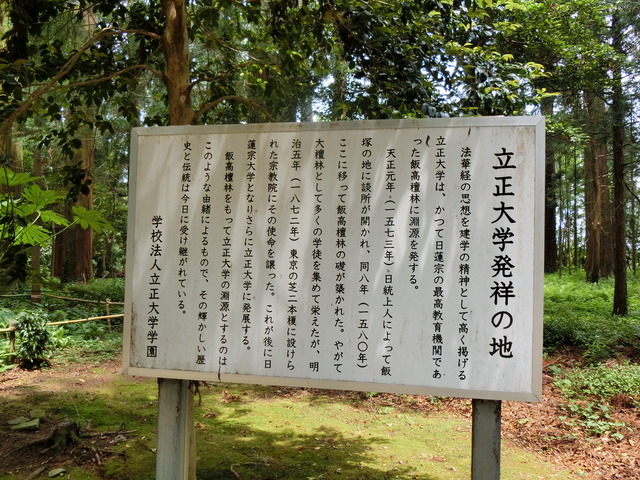 立正大学発祥の地
法華経の思想を建学の精神として高く掲げる
立正大学は、かつて日蓮宗の最高教育機関であ
った飯高檀林に淵源を発する。
天正元年（一五七三年）日統上人によって飯
塚の地に談所が開かれ、同八年（一五八〇年）
ここに移って飯高檀林の礎が築かれた。やがて
大檀林として多くの学徒を集めて栄えたが、明
治五年（一八七二年）東京の芝二本榎に設けら
れた宗教院にその使命を譲った。これが後に日
蓮宗大学となりさらに立正大学に発展する。
飯高檀林をもって立正大学の淵源とするのは
このような由緒によるもので、その輝かしい歴
史と伝統は今日に受け継がれている。
学校法人立正大学学園